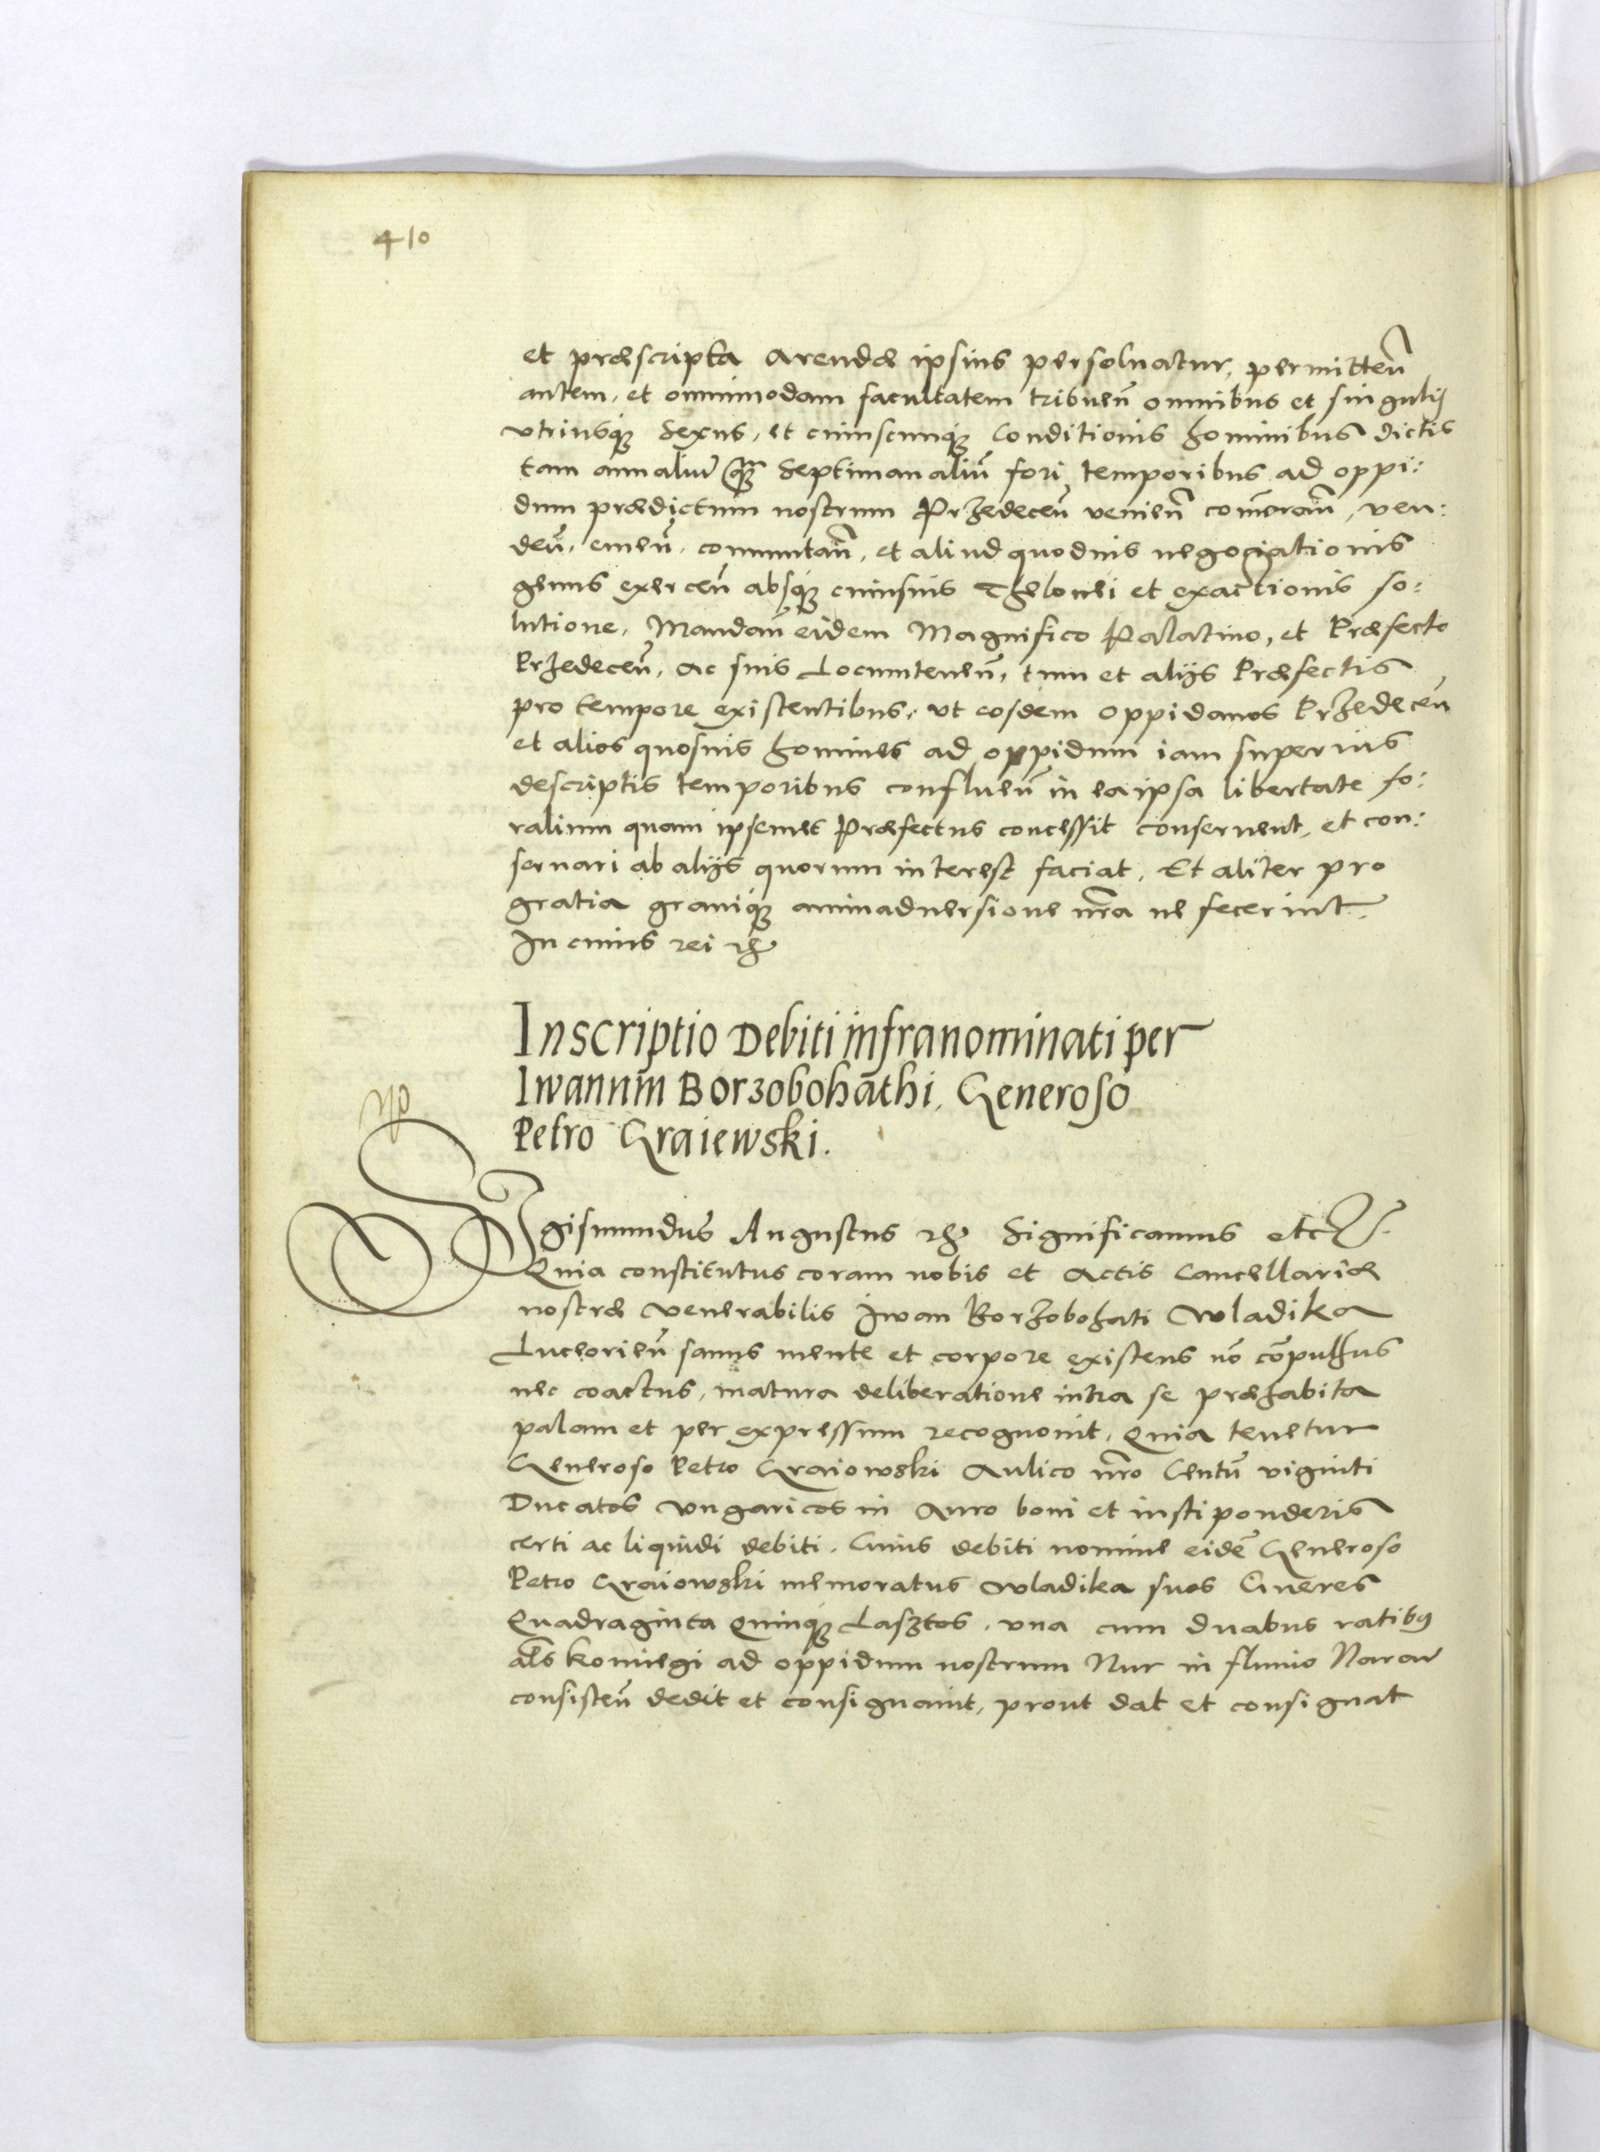 410
et præscripta Arendæ ipsius persoluatur, permitteñ
autem, et omnimodam facultatem tribueñ omnibus et singulis
vtriusq; Sexus, et cuiuscunq; Conditionis hominibus dictis
tam annaliũ q̃ Septimanaliũ fori temporibus ad oppi:
dum prædictum nostrum Przedeceñ venieñ com̃erañ, ven:
deñ, emeñ, commutañ, et aliud quoduis negociationis
genus exerceñ absq; cuiusuis Thelonei et exactionis so:
lutione, Mandañ eidem Magnifico Palatino, et Præfecto
Przedeceñ, ac suis Locumteneñ, tum et alijs Præfectis
pro tempore existentibus, vt eosdem oppidanos Przedeceñ
et alios quosuis homines ad oppidum iam superius
descriptis temporibus conflueñ in ea ipsa libertate fo:
ralium quam ipsemet Præfectus concessit conseruent, et con:
seruari ab alijs quorum interest faciat, Et aliter pro
gratia grauiq; animaduersione nr̃a ne fecerint.
In cuius rei etc
Inscriptio Debiti infranominati per
Iwanum Borzobohathi, Generoso
Petro Graiewski.
Sigismundus Augustus etc Significamus etc.
Quia constitutus coram nobis et Actis Cancellariæ
nostræ Venerabilis Iwan Borzobohati Wladika
Luceorieñ sanus mente et corpore existens nõ cõpulsus
nec coactus, matura deliberatione intra se præhabita
palam et per expressum recognouit, Quia tenetur
Generoso Petro Graiowski Aulico nr̃o Centũ viginti
Ducatos Vngaricos in Auro boni et iusti ponderis
certi ac liquidi debiti. Cuius debiti nomine eidẽ Generoso
Petro Graiowski memoratus Wladika suos Cineres
Quadraginta Quinq; Lasztos, vna cum duabus ratibus
als̃ Komiegi ad oppidum nostrum Nur in fluuio Narew
consisteñ dedit et consignauit, prout dat et consignat